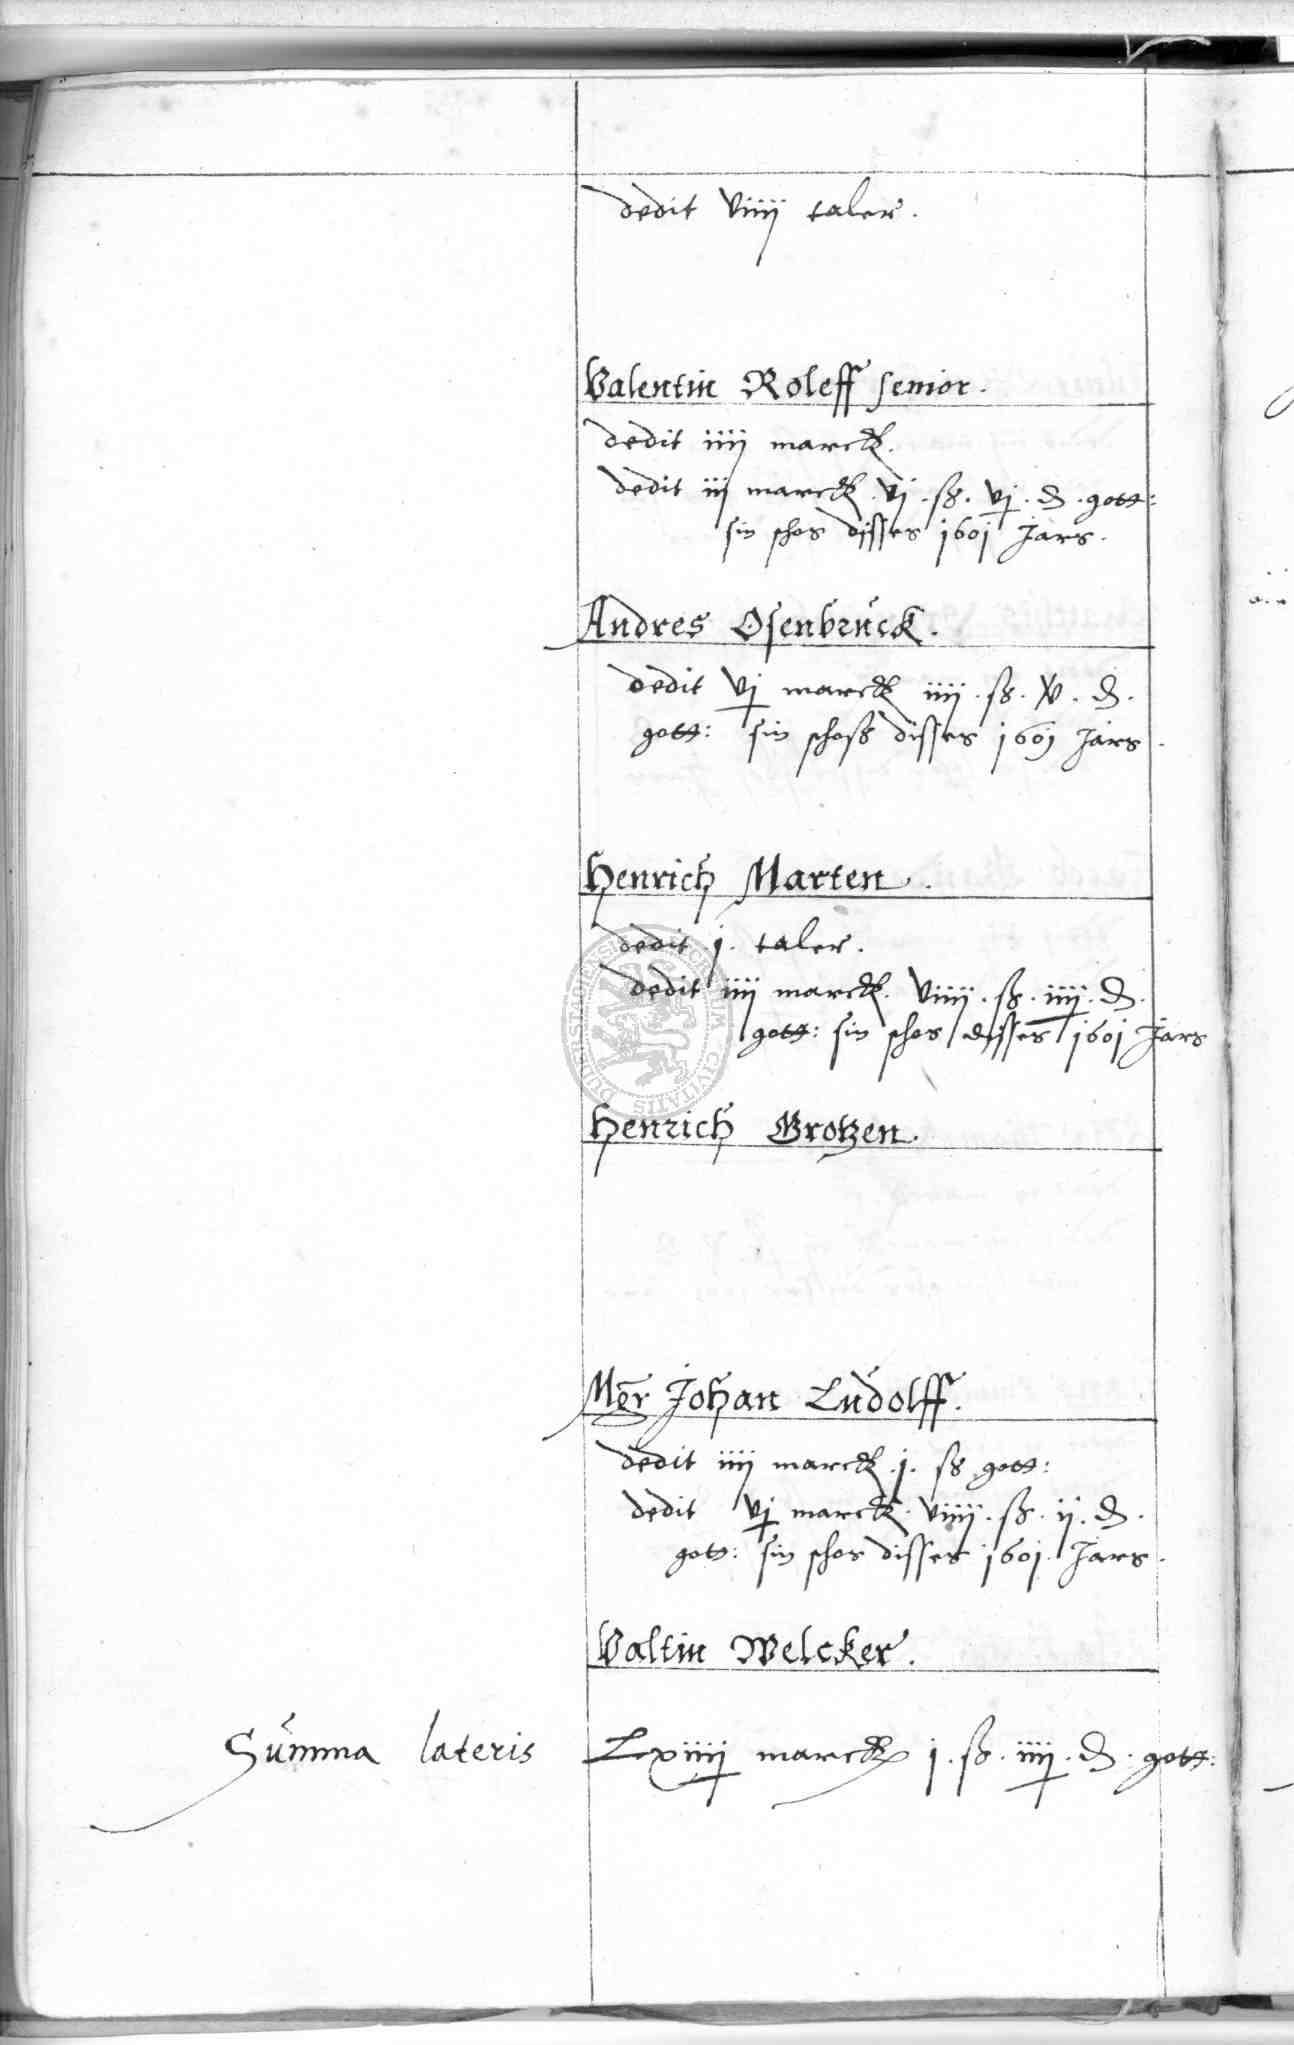 dedit viiij taler.
Valentin Roleff senior.
dedit iiij marck.
dedit iij marck. vj. ß. vj. d. gott:
sin schos disses 1601 Jars.
Andres Osenbruck.
dedit vj marck iiij. ß. v. d.
gott: sin schoß disses 1601 Jars.
Henrich Marten.
dedit j. taler.
dedit iiij marck. viiij. ß. iiij. d.
gott: sin schos disses 1601 Jars
Henrich Grotzen.
Mgr Johan Ludolff.
dedit iiij marck. j. ß gott:
dedit vj marck. viiij. ß. ij. d.
gott: sin schos disses 1601. Jars.
Valtin Welcker.
Summa lateris Lxiiij marck j. ß. iiij. d. gott: